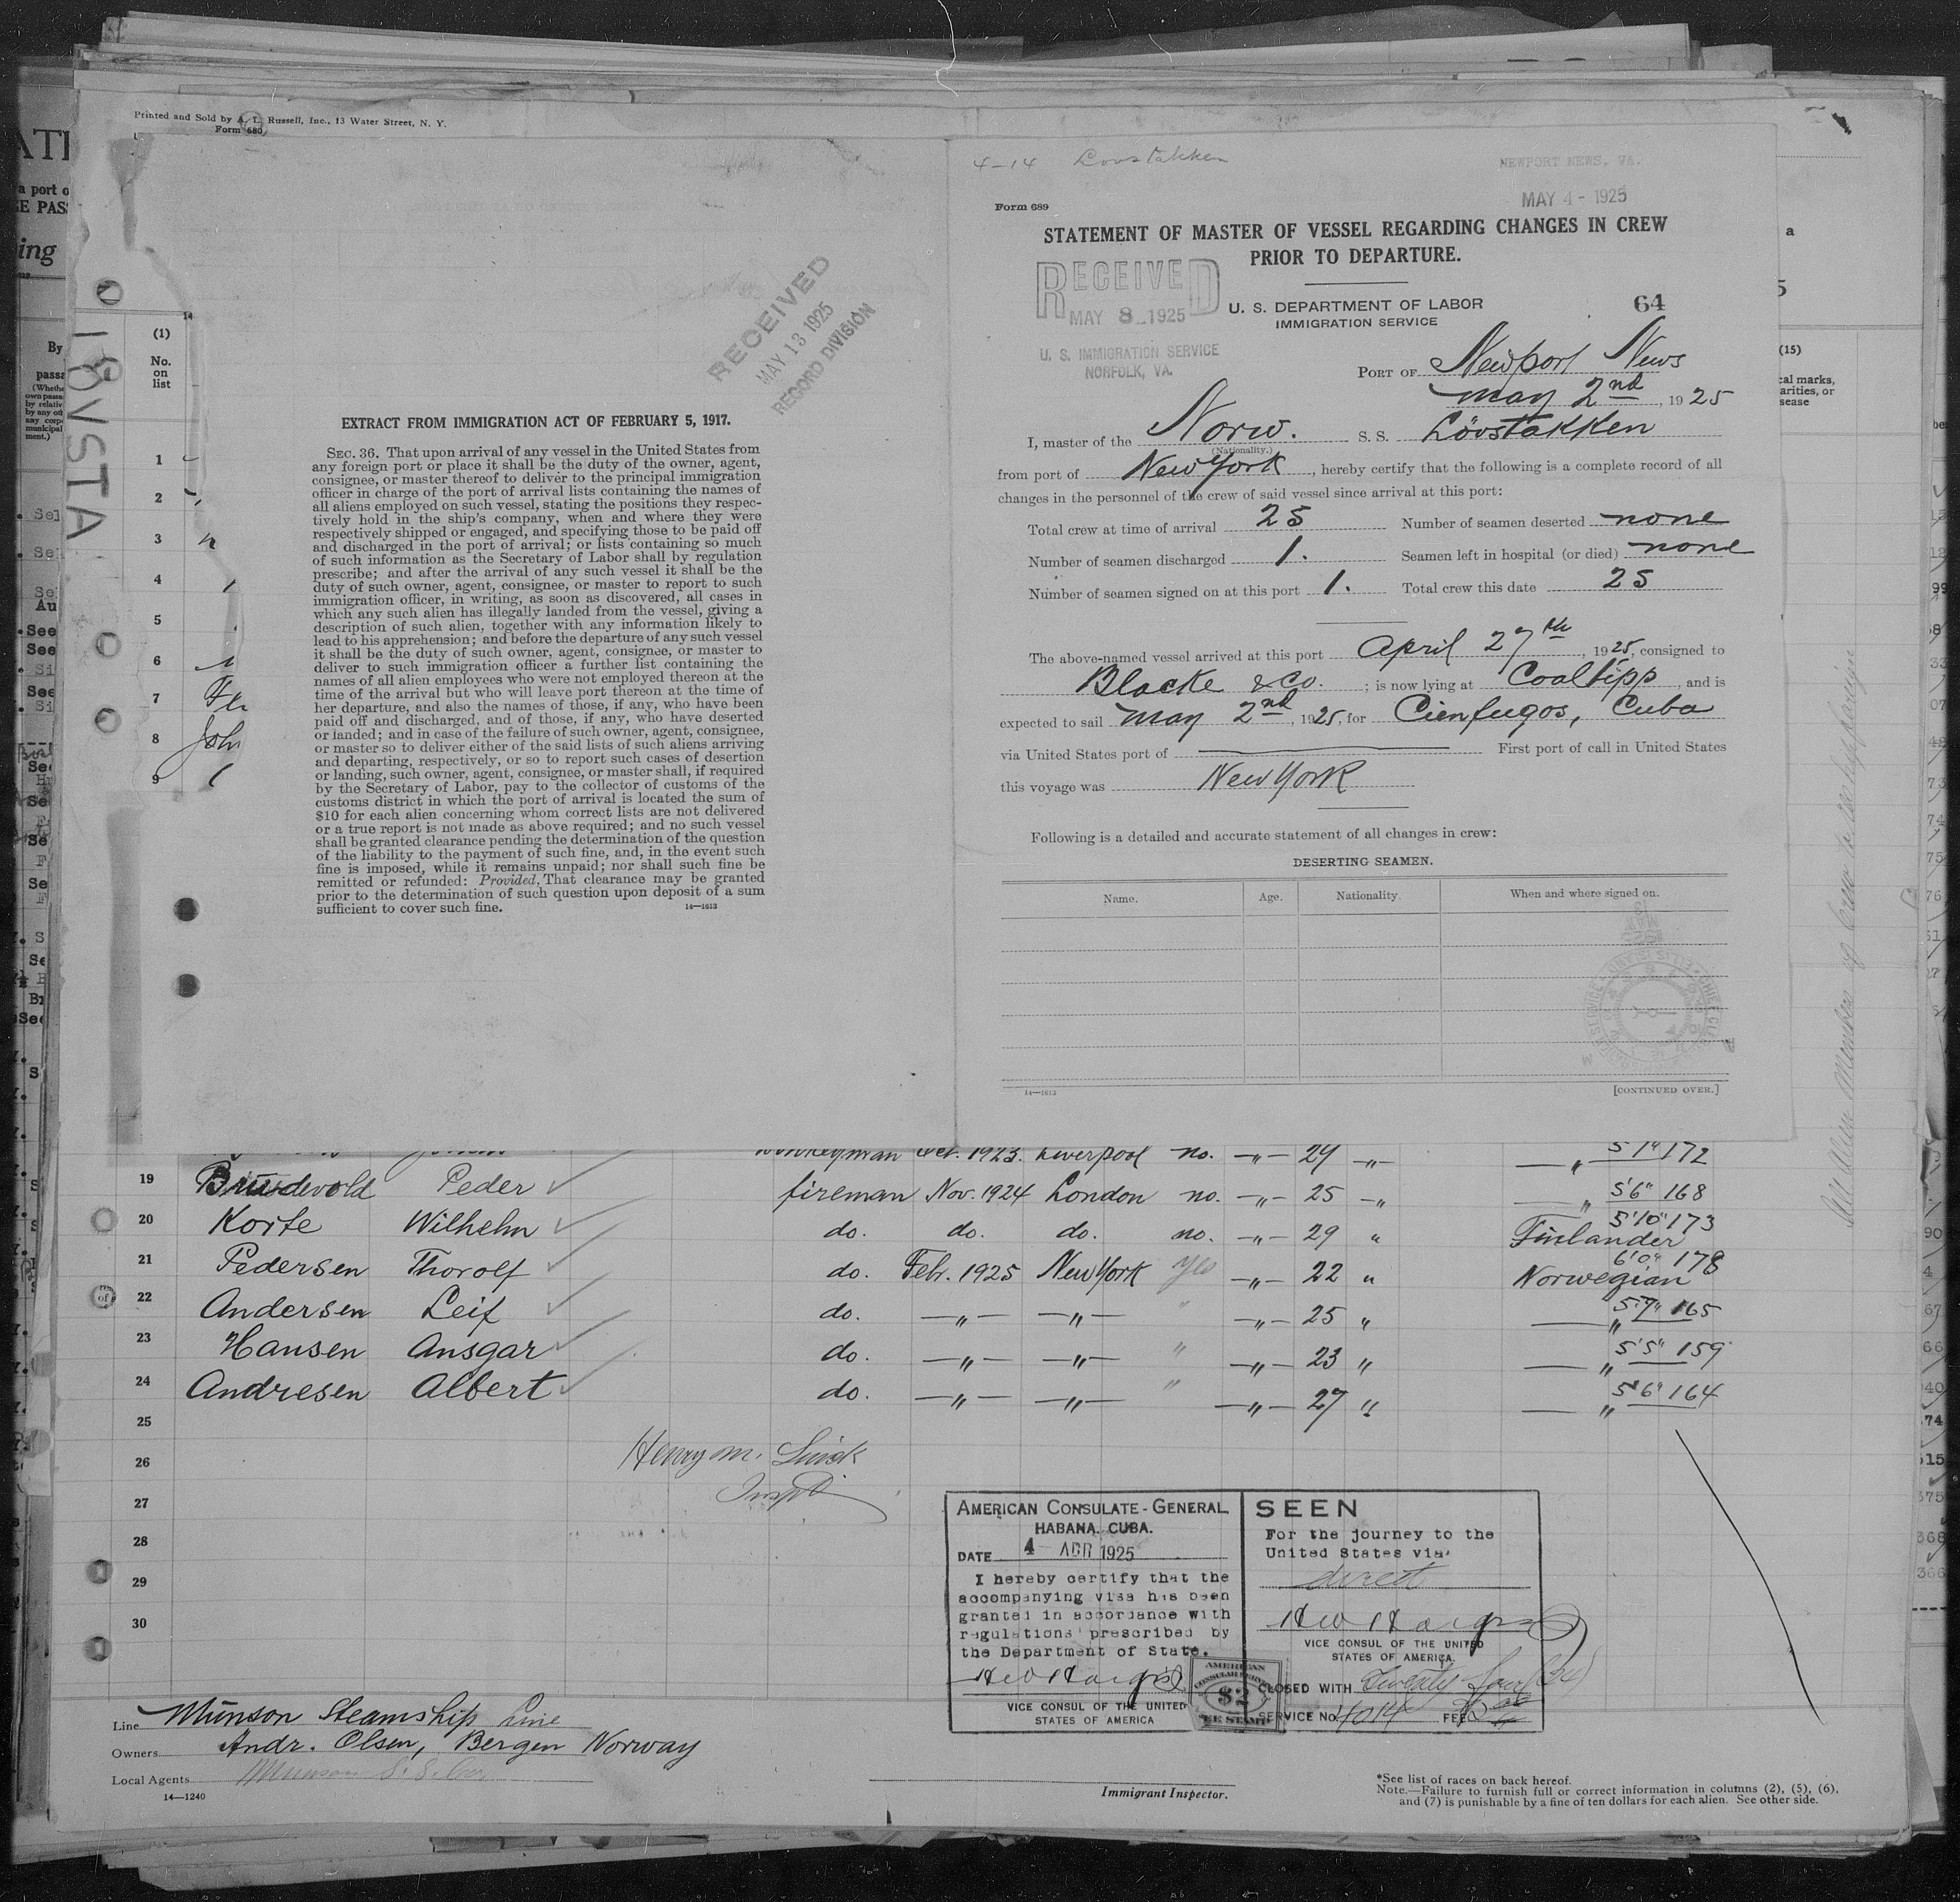 Printed and Sold by A. L. Russell, Inc., 13 Water Street, N. Y.
Form 680
(1)
No.
on
list
1
2
3
4
5
6
7
8
9
LOVSTA
RECEIVED
MAY 13 1925
RECORD DIVISION
EXTRACT FROM IMMIGRATION ACT OF FEBRUARY 5, 1917.
SEC. 36. That upon arrival of any vessel in the United States from
any foreign port or place it shall be the duty of the owner, agent,
consignee, or master thereof to deliver to the principal immigration
officer in charge of the port of arrival lists containing the names of
all aliens employed on such vessel, stating the positions they respec-
tively hold in the ship's company, when and where they were
respectively shipped or engaged, and specifying those to be paid off
and discharged in the port of arrival; or lists containing so much
of such information as the Secretary of Labor shall by regulation
prescribe; and after the arrival of any such vessel it shall be the
duty of such owner, agent, consignee, or master to report to such
immigration officer, in writing, as soon as discovered, all cases in
which any such alien has illegally landed from the vessel, giving a
description of such alien, together with any information likely to
lead to his apprehension; and before the departure of any such vessel
it shall be the duty of such owner, agent, consignee, or master to
deliver to such immigration officer a further list containing the
names of all alien employees who were not employed thereon at the
time of the arrival but who will leave port thereon at the time of
her departure, and also the names of those, if any, who have been
paid off and discharged, and of those, if any, who have deserted
or landed; and in case of the failure of such owner, agent, consignee,
or master so to deliver either of the said lists of such aliens arriving
and departing, respectively, or so to report such cases of desertion
or landing, such owner, agent, consignee, or master shall, if required
by the Secretary of Labor, pay to the collector of customs of the
customs district in which the port of arrival is located the sum of
$10 for each alien concerning whom correct lists are not delivered
or a true report is not made as above required; and no such vessel
shall be granted clearance pending the determination of the question
of the liability to the payment of such fine, and, in the event such
fine is imposed, while it remains unpaid; nor shall such fine be
remitted or refunded: Provided, That clearance may be granted
prior to the determination of such question upon deposit of a sum
sufficient to cover such fine.
14—1613
4-14 Lovstakken
NEWPORT NEWS, VA.
MAY 4 - 1925
Form 689
STATEMENT OF MASTER OF VESSEL REGARDING CHANGES IN CREW
PRIOR TO DEPARTURE.
RECEIVED
MAY 8 1925
U. S. IMMIGRATION SERVICE
NORFOLK, VA.
U. S. DEPARTMENT OF LABOR
IMMIGRATION SERVICE
64
PORT OF Newport News
May 2nd, 1925
I, master of the Norw. S. S. Lövstakken
(Nationality.)
from port of New York, hereby certify that the following is a complete record of all
changes in the personnel of the crew of said vessel since arrival at this port:
Total crew at time of arrival 25 Number of seamen deserted none
Number of seamen discharged 1. Seamen left in hospital (or died) none
Number of seamen signed on at this port 1. Total crew this date 25
The above-named vessel arrived at this port April 27th, 1925, consigned to
Blacke & Co.; is now lying at Coaltipp, and is
expected to sail May 2nd, 1925, for Cienfugos, Cuba
via United States port of First port of call in United States
this voyage was New York
Following is a detailed and accurate statement of all changes in crew:
DESERTING SEAMEN.
Name. Age. Nationality. When and where signed on.
14—1613 [CONTINUED OVER.]
donkeyman Oct. 1923. Liverpool no. -"- 29 -"- -"- 5'7" 172
19 Brudevold Peder fireman Nov. 1924 London no. -"- 25 -"- -"- 5'6" 168
20 Korte Wilhelm do. do. do. no. -"- 29 " Finlander 5'10" 173
21 Pedersen Thorolf do. Febr. 1925 New York yes -"- 22 " Norwegian 6'0" 178
22 Andersen Leif do. -"- -"- " -"- 25 " -"- 5'7" 165
23 Hansen Ansgar do. -"- -"- " -"- 23 " -"- 5'5" 159
24 Andresen Albert do. -"- -"- " -"- 27 " -"- 5'6" 164
25
26
27
28
29
30
Henry M.
Insp
AMERICAN CONSULATE-GENERAL
HABANA, CUBA.
DATE 4 ABR 1925
I hereby certify that the
accompanying visa has been
granted in accordance with
regulations prescribed by
the Department of State.
VICE CONSUL OF THE UNITED
STATES OF AMERICA
AMERICAN
CONSULAR SERVICE
$2
FEE STAMP
SEEN
For the journey to the
United States via
direct
VICE CONSUL OF THE UNITED
STATES OF AMERICA.
CLOSED WITH Twenty four (24)
SERVICE No. 4014 FEE
Line Munson Steamship Line
Owners Andr. Olsen, Bergen Norway
Local Agents Munson S. S. Line
14—1240
Immigrant Inspector.
*See list of races on back hereof.
Note.—Failure to furnish full or correct information in columns (2), (5), (6),
and (7) is punishable by a fine of ten dollars for each alien. See other side.